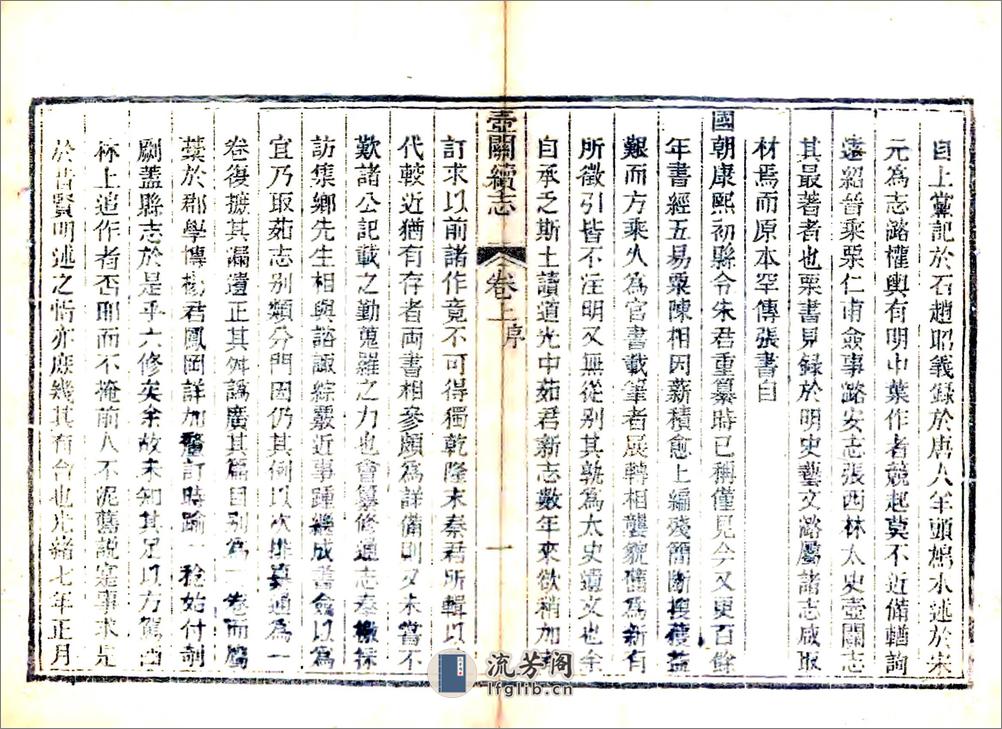 自上黨記於石趙昭義錄於唐八年頭鳩水述於宋
元為志潞權輿有明中葉作者競起莫不近備輶詢
遠紹晉乘栗仁甫僉事潞安志張西林太史壺關志
其最著者也栗書見錄於明史藝文潞屬諸志咸取
材焉而原本罕傳張書自
國朝康熙初縣令朱君重纂時已稱僅見今又更百餘
年書經五易粟陳相因薪積愈上編殘簡斷撰獲益
艱而方乘久為官書載筆者展轉相襲貌舊為新有
所徵引皆不注明又無從別其孰為太史遺文也余
自承乏斯土讀道光中茹君新志數年來欲稍加
壺關續志
卷上
序
一
訂求以前諸作竟不可得獨乾隆末秦君所輯以
代較近猶有存者両書相參頗為詳備則又未嘗不
歎諸公記載之勤蒐羅之力也會纂修通志奉檄採
訪集鄉先生相與諮諏綜覈近事踵幾成書僉以為
宜乃取茹志別類分門因仍其例以次排纂通為一
卷復摭其漏遺正其舛譌廣其篇目別為一卷而屬
葉於郡學博楊君鳳岡詳加釐訂時踰一稔始付剞
劂蓋縣志於是乎六修矣余故未知其足以方駕西
林上追作者否耶而不掩前人不泥舊說寔事求是
於昔賢明述之恉亦庶幾其有合也光緒七年正月
流芳阁
lfglib.cn